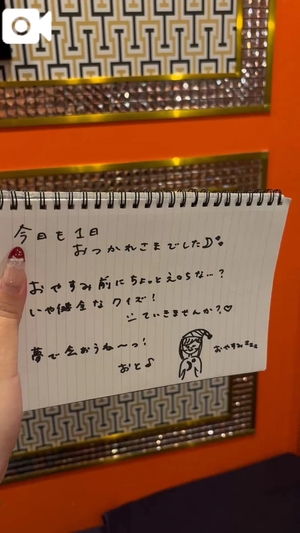 今日も1日
おつかれさまでしたD
おやすみ前にちょっとえっちな…?
いや健全なクイズ!
していきませんか?♡
夢で会おうね〜っ!
おと♪
おやすみzzz